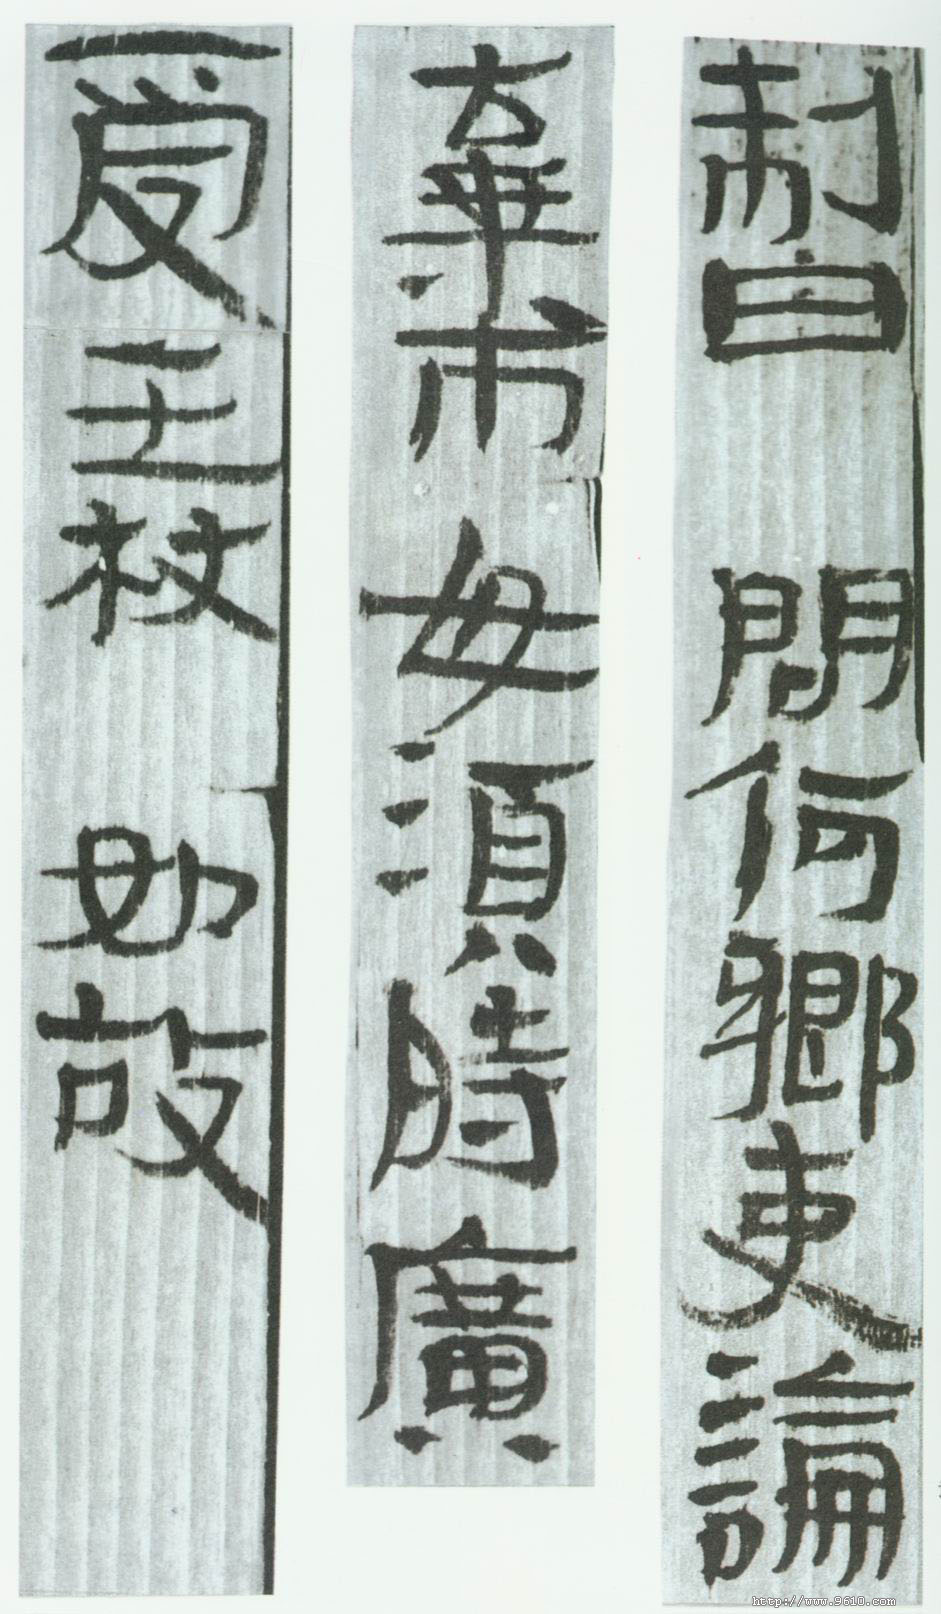 制曰問何鄉吏論
棄市毋須時廣
受王杖如故
http://www.9610.com